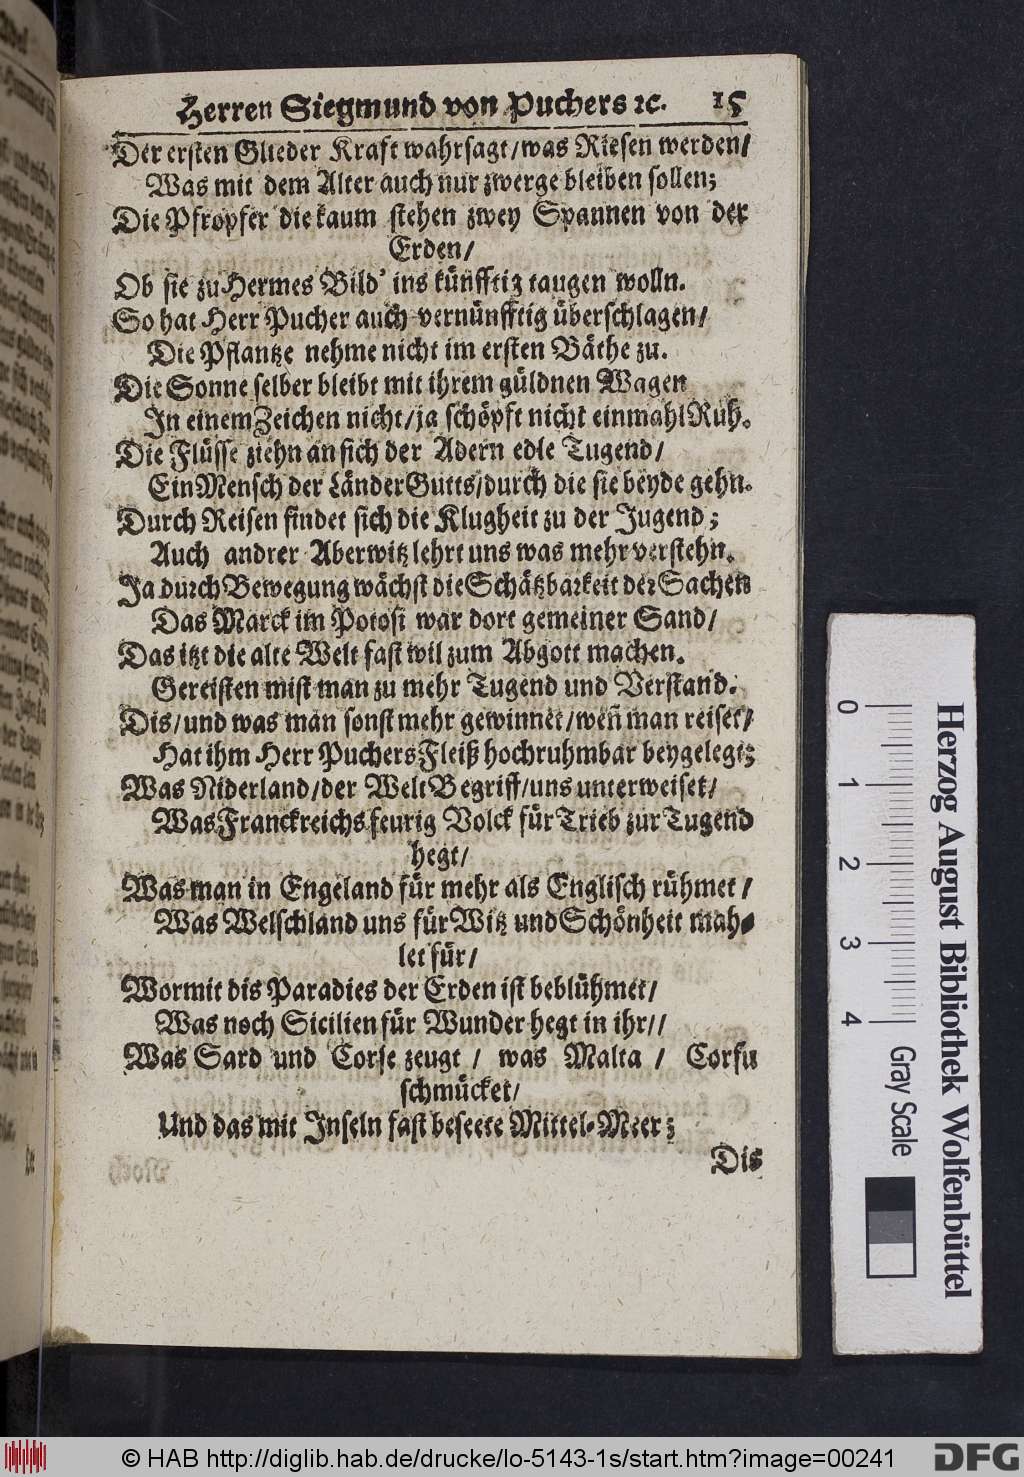 Herren Siegmund von Puchers ꝛc. 15
Der ersten Glieder Kraft wahrsagt/was Riesen werden/
Was mit dem Alter auch nur zwerge bleiben sollen;
Die Pfropfer die kaum stehen zwey Spannen von der
Erden/
Ob sie zu Hermes Bild' ins künfftig taugen wolln.
So hat Herr Pucher auch vernünfftig überschlagen/
Die Pflantze nehme nicht im ersten Bäthe zu.
Die Sonne selber bleibt mit ihrem güldnen Wagen
In einem Zeichen nicht/ja schöpft nicht einmahl Ruh.
Die Flüsse ziehn an sich der Adern edle Tugend/
Ein Mensch der Länder Gutts/durch die sie beyde gehn.
Durch Reisen findet sich die Klugheit zu der Jugend;
Auch andrer Aberwitz lehrt uns was mehr verstehn.
Ja durch Bewegung wächst die Schätzbarkeit der Sachen
Das Marck im Potosi war dort gemeiner Sand/
Das itzt die alte Welt fast wil zum Abgott machen.
Gereisten mist man zu mehr Tugend und Verstand.
Dis/und was man sonst mehr gewinnet/weñ man reiset/
Hat ihm Herr Puchers Fleiß hochruhmbar beygelegt;
Was Niderland/der Welt Begriff/uns unterweiset/
Was Franckreichs feurig Volck für Trieb zur Tugend
hegt/
Was man in Engeland für mehr als Englisch rühmet/
Was Welschland uns für Witz und Schönheit mah-
let für/
Wormit dis Paradies der Erden ist beblühmet/
Was noch Sicilien für Wunder hegt in ihr//
Was Sard und Corse zeugt / was Malta / Corfu
schmücket/
Und das mit Inseln fast beseete Mittel-Meer;
Dis
0 1 2 3 4
Gray Scale
Herzog August Bibliothek Wolfenbüttel
© HAB http://diglib.hab.de/drucke/lo-5143-1s/start.htm?image=00241
DFG